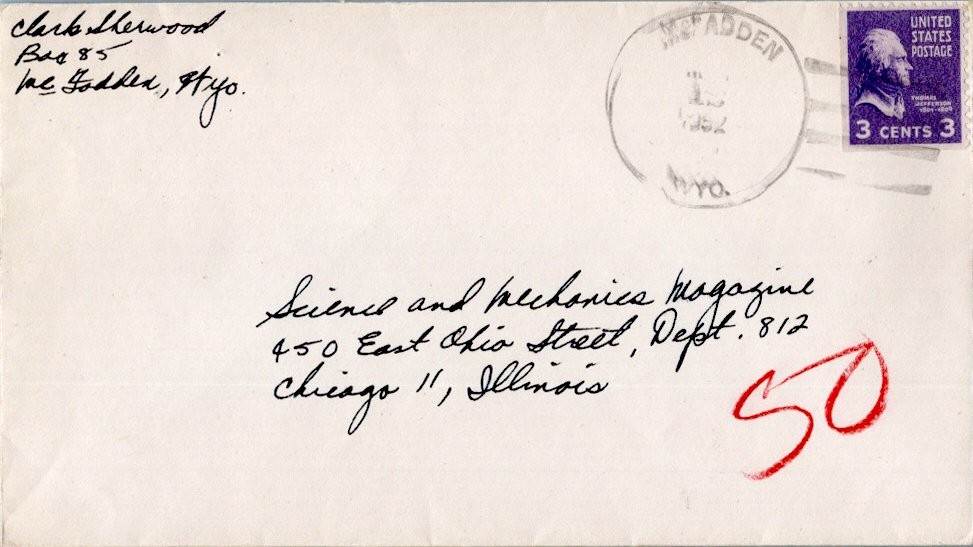 Clark Sherwood
Box 85
Mc Fadden, Wyo.
McFADDEN
1952
WYO.
UNITED
STATES
POSTAGE
THOMAS
JEFFERSON
1801-1809
3 CENTS 3
Science and Mechanics Magazine
450 East Ohio Street, Dept. 812
Chicago 11, Illinois
50